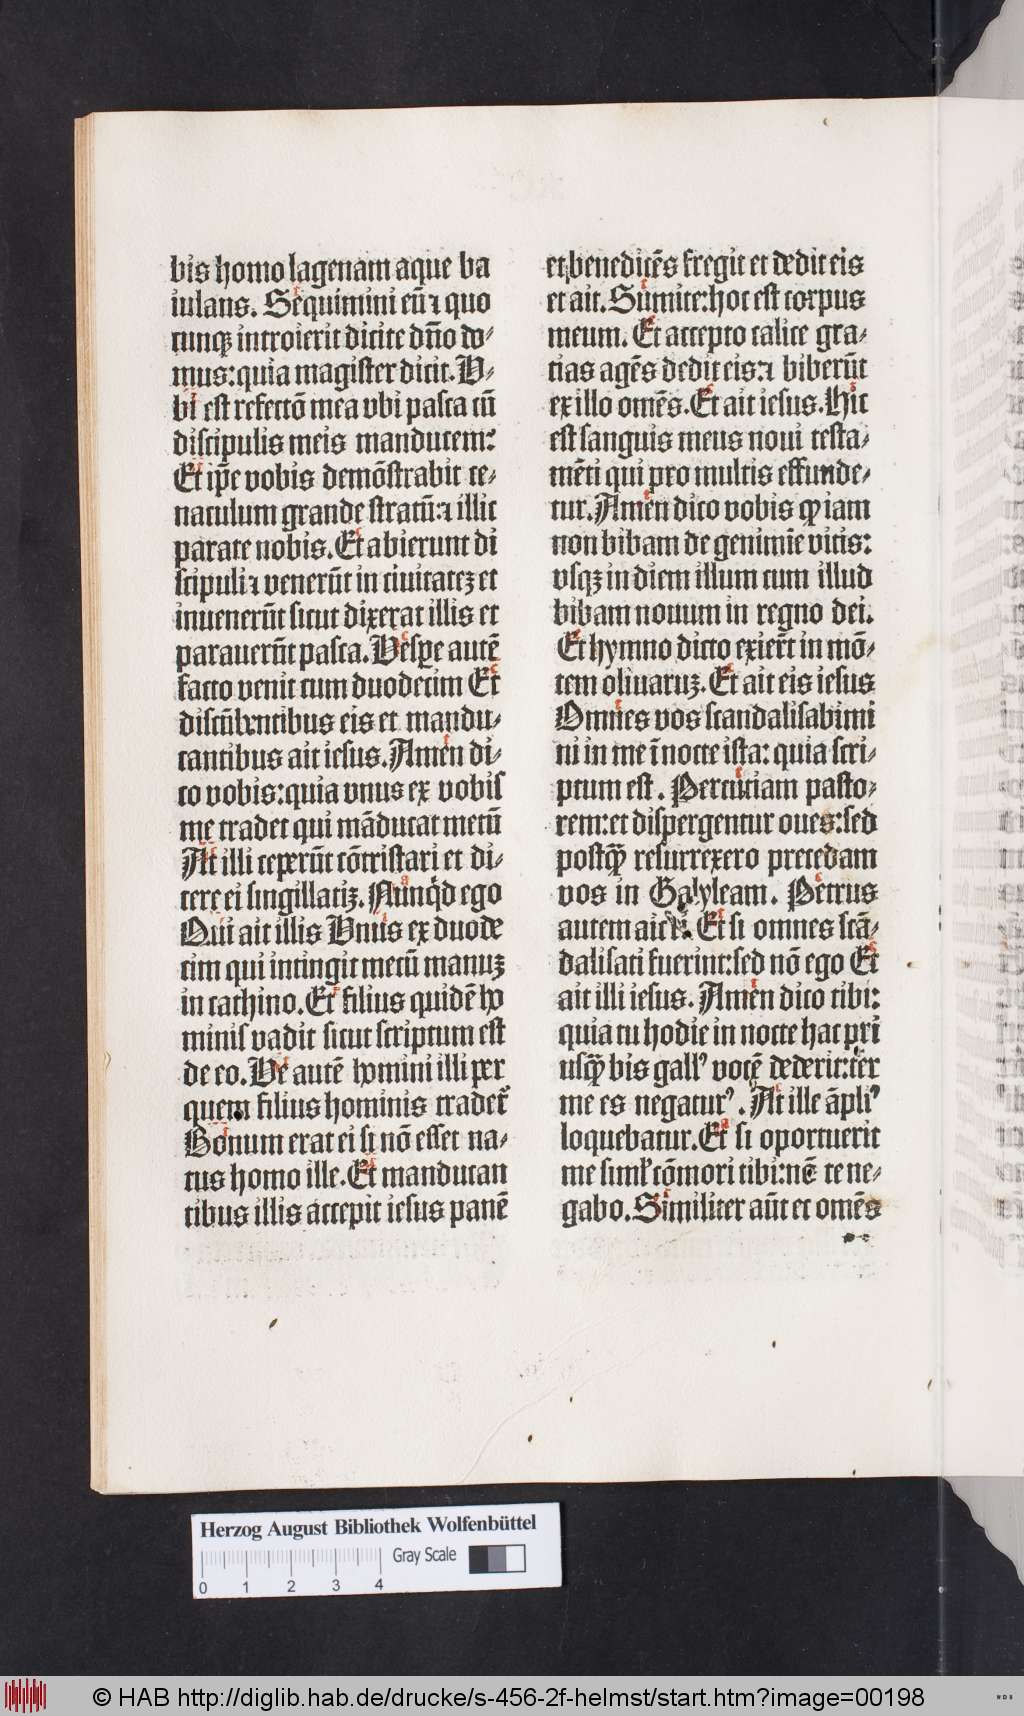 bis homo lagenam aque ba
iulans. Sequimini eū ⁊ quo
cunqꝫ introierit dicite dn̄o do⸗
mus: quia magister dicit. V⸗
bi est refectō mea vbi pasca cū
discipulis meis manducem?
Et ip̄e vobis demōstrabit ce⸗
naculum grande stratū: ⁊ illic
parate nobis. Et abierunt di
scipuli ⁊ venerūt in ciuitateꝫ et
inuenerūt sicut dixerat illis et
parauerūt pasca. Vesꝑe autē
facto venit cum duodecim Et
discūbentibus eis et mandu⸗
cantibus ait iesus. Amen di⸗
co vobis: quia vnus ex vobis
me tradet qui māducat mecū
At illi ceperūt cōtristari et di⸗
cere ei singillatiꝫ. Nūnqͥd ego
Qui ait illis Vnus ex duode
cim qui intingit mecū manuꝫ
in cathino. Et filius quidē ho
minis vadit sicut scriptum est
de eo. Ve autē homini illi per
quem filius hominis tradet᷑
Bonum erat ei si nō esset na⸗
tus homo ille. Et manducan
tibus illis accepit iesus panē
et benedicēs fregit et dedit eis
et ait. Sumite: hoc est corpus
meum. Et accepto calice gra⸗
tias agēs dedit eis: ⁊ biberūt
ex illo omēs. Et ait iesus. Hic
est sanguis meus noui testa⸗
mēti qui pro multis effunde⸗
tur. Amen dico vobis ꝙ iam
non bibam de genimīe vitis:
vsqꝫ in diem illum cum illud
bibam nouum in regno dei.
Et hymno dicto exier̄t in mō⸗
tem oliuaruꝫ. Et ait eis iesus
Omnes vos scandalisabimi
ni in me ī nocte ista: quia scri⸗
ptum est. Percutiam pasto⸗
rem: et dispergentur oues: sed
postꝙ̄ resurrexero precedam
vos in Galyleam. Petrus
autem ait ei. Et si omnes scā⸗
dalisati fuerint: sed nō ego Et
ait illi iesus. Amen dico tibi:
quia tu hodie in nocte hac pri
usꝙ̄ bis gallꝰ vocē dederit: ter
me es negaturꝰ. At ille āpliꝰ
loquebatur. Et si oportuerit
me siml̕ cōmori tibi: nō te ne⸗
gabo. Similiter aūt et omēs
Herzog August Bibliothek Wolfenbüttel
Gray Scale
0 1 2 3 4
© HAB http://diglib.hab.de/drucke/s-456-2f-helmst/start.htm?image=00198